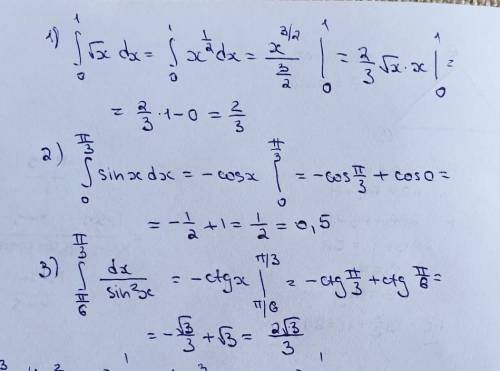 1) ∫₀¹ √x dx = ∫₀¹ x^(1/2) dx = x^(3/2)/(3/2) |₀¹ = 2/3 √x · x |₀¹ =
= 2/3 · 1 - 0 = 2/3
2) ∫₀^(π/3) sin x dx = -cos x |₀^(π/3) = -cos π/3 + cos 0 =
= -1/2 + 1 = 1/2 = 0,5
3) ∫_(π/6)^(π/3) dx/sin²x = -ctg x |_(π/6)^(π/3) = -ctg π/3 + ctg π/6 =
= -√3/3 + √3 = 2√3/3